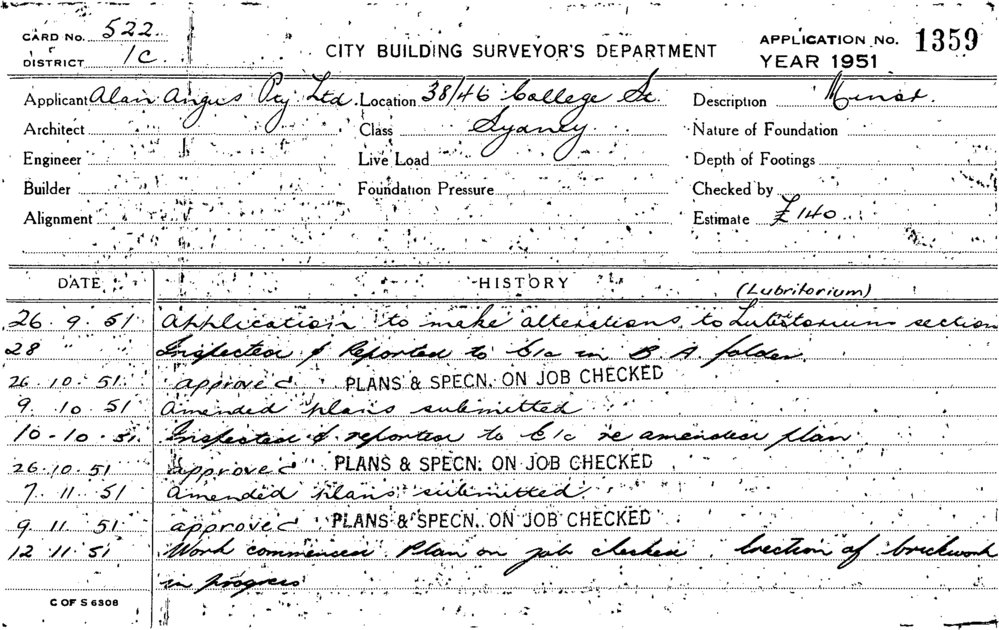 CARD No. 522
DISTRICT 1C
CITY BUILDING SURVEYOR'S DEPARTMENT
APPLICATION No. 1359
YEAR 1951
Applicant Alan Angus Pty Ltd Location 38/46 College St. Description Minor.
Architect Class Sydney Nature of Foundation
Engineer Live Load Depth of Footings
Builder Foundation Pressure Checked by
Alignment Estimate £140
DATE HISTORY
(Lubritorium)
26. 9. 51 Application to make alterations to Lubritorium section
28 " " Inspected & Reported to E/c in B A folder
26. 10. 51 approved PLANS & SPECN. ON JOB CHECKED
9. 10. 51 amended plans submitted
10-10-51 Inspected & reported to E/c re amended plan
26.10.51 approved PLANS & SPECN. ON JOB CHECKED
7. 11. 51 amended plans submitted
9. 11. 51 approved PLANS & SPECN. ON JOB CHECKED
12 11. 51 Work commenced Plan on job checked. Erection of brickwork
in progress
C OF S 6308